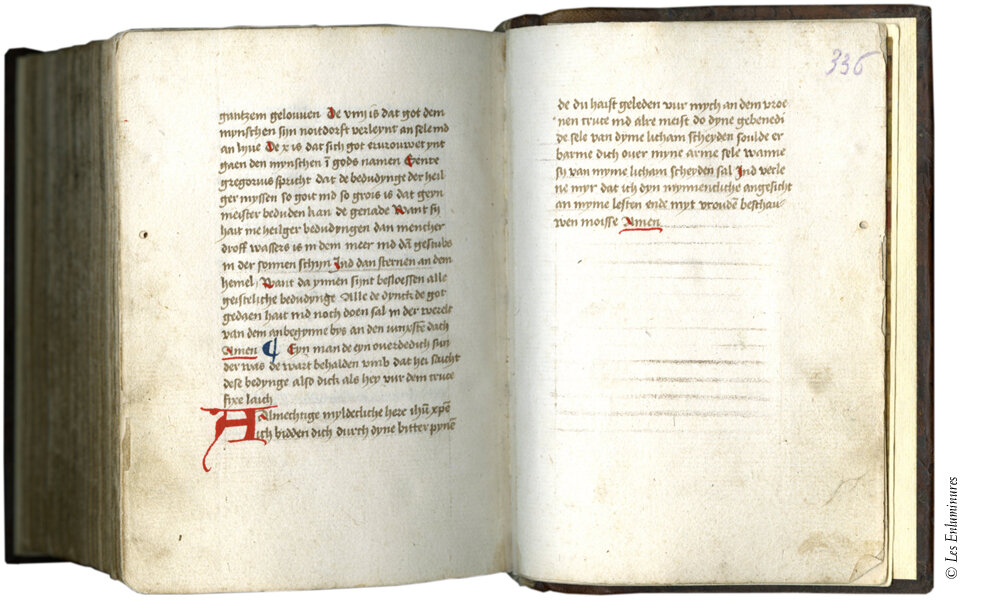 gantzem gelouven De viiij is dat got dem
mynschen sijn noitdorft verleynt an sele ind
an lyue De x is dat sich got
gaen den mynschen ī gods namen Sente
gregorius spricht dat de bedudynge der heil
ger myssen so goit ind so grois is dat geyn
meister beduden kan de genade Want sy
hait me heilger bedudyngen dan mencher
droff wassers is in dem meer ind dā gestubs
in der sonnen schijn Ind dan sternen an dem
hemel Want da ynnen sijnt besloessen alle
geistliche bedudynge Alle de dynck de got
gedaen hait ind noch doen sal in der werelt
van dem anbegynne bys an den iunxstē dach
Amen Eyn man de eyn overdedich sun
der was de wart behalden vmb dat hei
dese bedynge also dick als hey vur dem cruce
fixe
Almechtige myldecliche here ihū xpē
Ich bidden dich durch dyne bitter pynē
336
de du haist geleden vur mych an dem vroe
nen cruce ind alre meist do dyne gebenedi
de sele van dyme licham scheyden soulde er
barme dich over myne arme sele wanne
sy van myme licham scheyden sal Ind verle
ne myr dat ich dyn mynnencliche angesicht
an myme lesten ende myt vroudē beschau
wen moisse Amen
© Les Enluminures